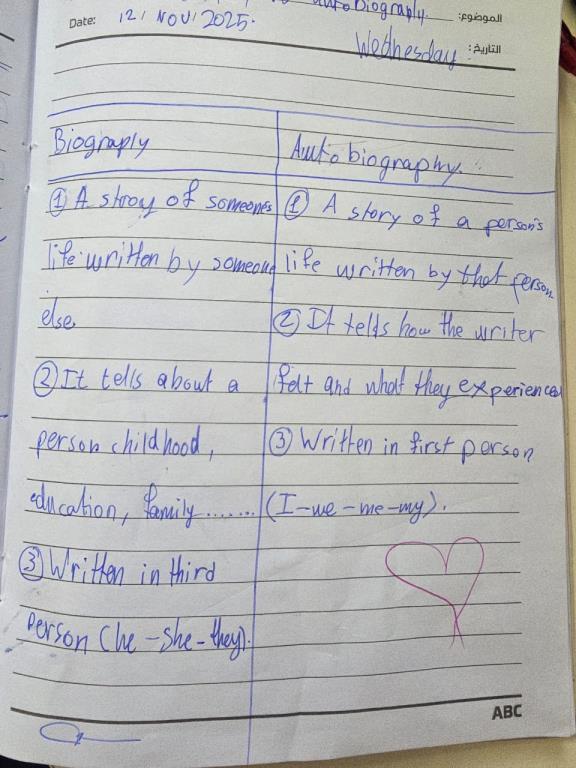 Autobiography. الموضوع:
Date: 12/ NOV/ 2025.
Wednesday التاريخ:
Biograply
Auto biography.
① A stroy of someones
life written by someone
else
② It tells about a
person childhood,
education, family .......
③ Written in third
person (he - she - they).
① A story of a person's
life written by that person
② It tells how the writer
felt and what they experienced
③ Written in first person
(I - we - me - my).
ABC